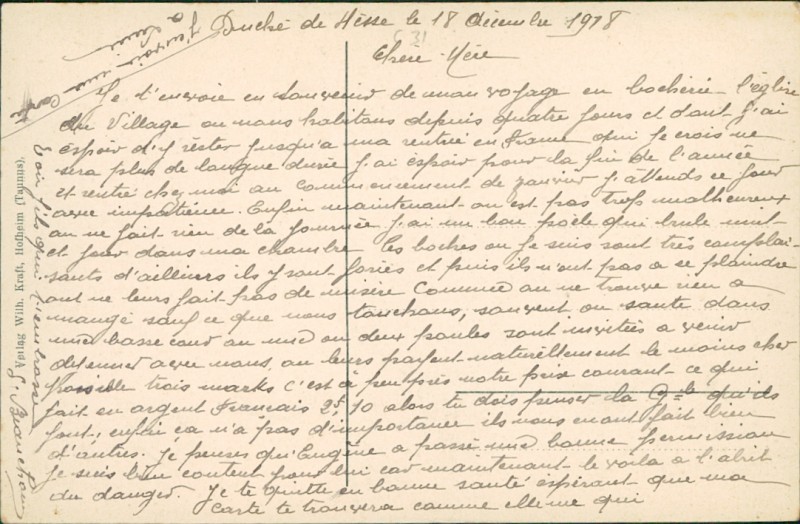 Duché de Hesse le 18 décembre 1918
Chere Mère
Je t'envoie en souvenir de mon voyage en bochérie l'église
du Village ou nous habitons depuis quatre jours et dont j'ai
espoir d'y rester jusqu'a ma rentrée en France qui je crois ne
sera plus de longue durée j'ai espoir pour la fin de l'année
et rentré chez moi au commencement de janvier j'attends ce jour
avec impatience. Enfin maintenant on est pas trop malheureux
on ne fait rien de la journée j'ai un bon poële qui brule nuit
et jour dans ma chambre les boches ou je suis sont très complai-
sants d'ailleurs ils y sont foriés et puis ils n'ont pas a se plaindre
ont ne leurs fait pas de misère Comme on ne trouve rien a
mangé sauf ce que nous touchons, souvent on saute dans
une basse cour ou une ou deux poules sont invitées a venir
déjeuner avec nous, on leurs payent naturellement le moins cher
possible trois marks c'est à peu près notre prix courant ce qui
fait en argent Francais 2f,10 alors tu dois penser la qu'ils
font, enfin ca n'a pas d'importance ils nous en ont fait bien
d'autres. Je penses qu'Eugène a passé une bonne permission
je suis bien content pour lui car maintenant le voila a l'abrit
du danger. Je te quitte en bonne santé espérant que ma
carte te trouvera comme elle me qui
ton fils qui t'embrasse
J'envoie une carte
a
Verlag Wilh. Kraft, Hofheim (Taunus).